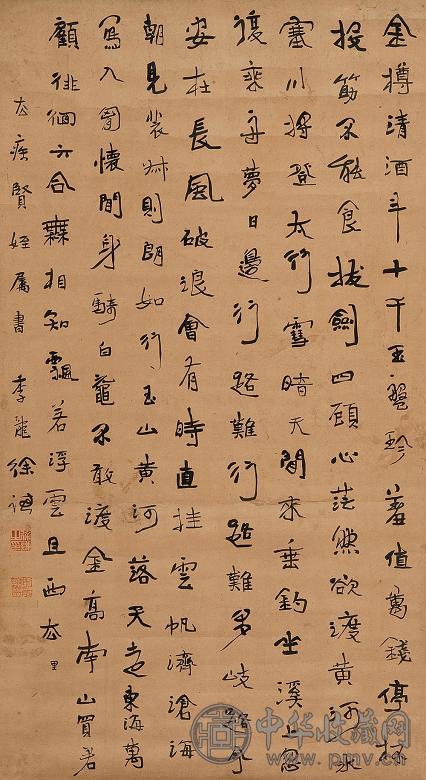 金樽清酒斗十千玉盤珍羞值萬錢停杯
投筯不能食拔劍四顧心茫然欲渡黃河冰
塞川將登太行雪暗天閒來垂釣坐溪上忽
復乘舟夢日邊行路難行路難多岐路今
安在長風破浪會有時直挂雲帆濟滄海
朝見裴叔則朗如行玉山黃河落天走東海萬
寫入胷懷間身騎白黿不敢渡金高南山買君
顧徘徊六合無相知飄若浮雲且西去
里
去疾賢姪屬書 季龍徐
中华收藏网